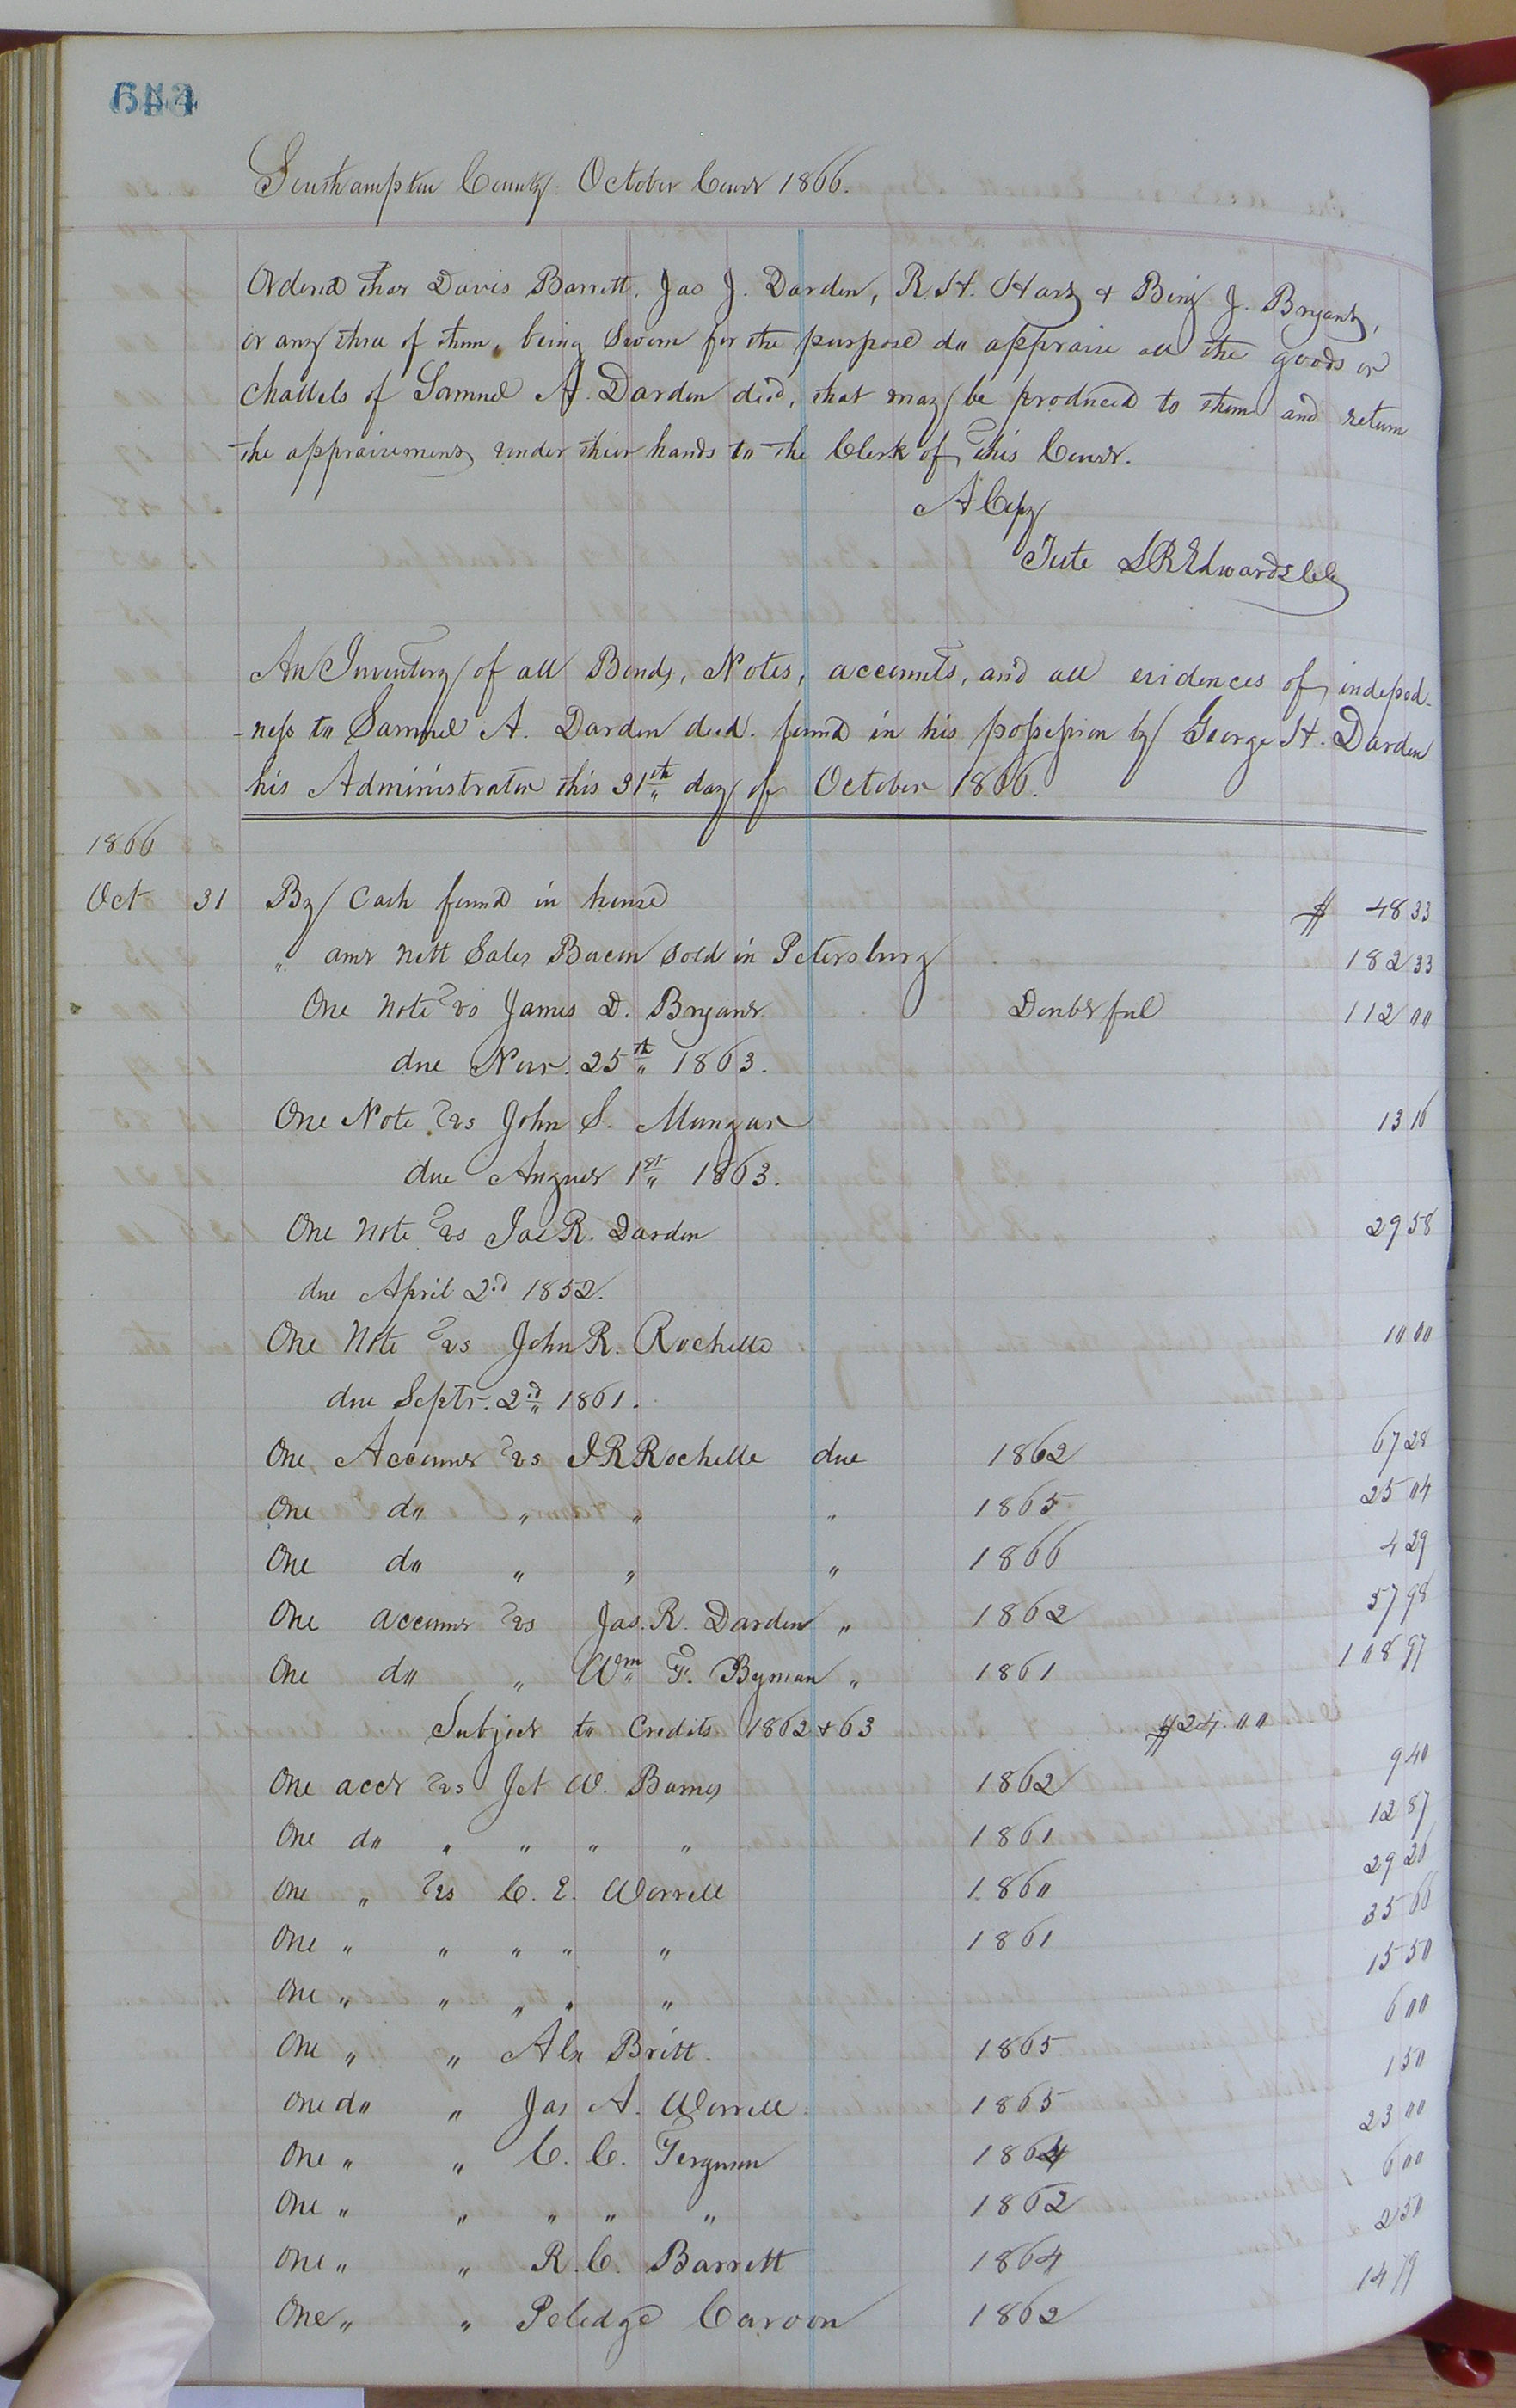 Southampton County October Court 1866.
Ordered that Davis Barrett, Jas J. Darden, R. H. Harz & Benj J. Bryant,
or any three of them, being Sworn for the purpose do appraise all the goods or
Chattels of Samuel A. Darden decd, that may be produced to them and return
the appraisement under their hands to the Clerk of this Court.
A Copy
Teste L R Edwards Clk
An Inventory of all Bonds, Notes, accounts, and all evidences of indebted-
-ness to Samuel A. Darden decd. found in his possession by George H. Darden
his Administrator this 31th day of October 1866.
1866
Oct 31 By Cash found in house $ 48 33
" amt nett Sales Bacon Sold in Petersburg 182 33
One note vs James D. Bryant Doubtful 112 00
due Nov. 25th 1863.
One Note vs John S. Mungar 13 16
due August 1st 1863.
One note vs Jas R. Darden 29 58
due April 2d 1852.
One Note vs John R. Rochelle 10 00
due Septr. 2d 1861.
One Account vs J R Rochelle due 1862 67 28
One do " " " 1865 25 04
One do " " " 1866 4 29
One account vs Jas. R. Darden " 1862 57 98
One do " Wm F. Byman " 1861 108 97
Subject to Credits 1862 & 63 $24.00
One acct vs Jet W. Barnes 1862 9 40
One do " " " " 1861 12 87
One " vs C. E. Worrell 1860 29 26
One " " " " " 1861 35 66
One " " " " " 15 50
One " " Alx Britt. 1865 6 00
One do " Jas A. Worrell 1865 1 50
One " " C. C. Ferguson 1864 23 00
One " " " " " 1862 6 00
One " " R. C. Barrett 1864 2 50
One " " Peledge Carvon 1862 14 79